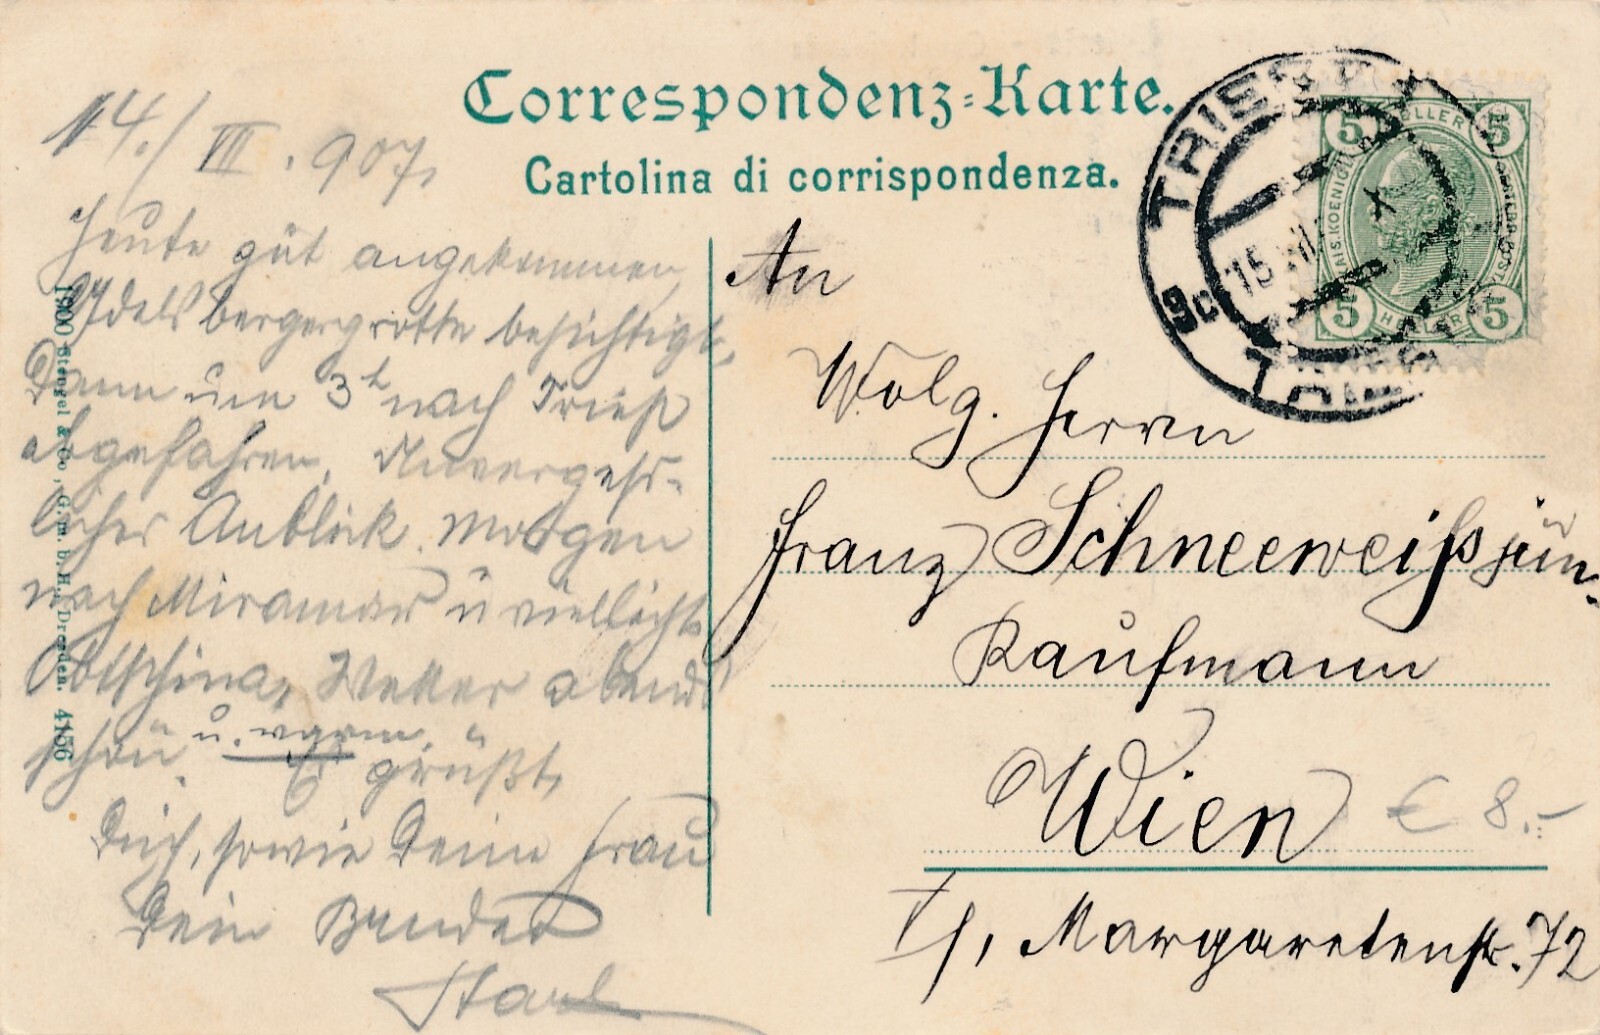 Correspondenz-Karte.
Cartolina di corrispondenza.
14./VII. 907.
Heute gut angekommen,
Adelsbergergrotte besichtigt,
Dann um 3h nach Triest
abgefahren. Unvergess-
licher Anblick. Morgen
nach Miramar u vielleicht
Obtschina, Wetter abends
schön u. warm. Es grüßt
Dich, sowie Deine Frau
Dein Bruder
Karl
1900 Stengel & Co., G. m. b. H., Dresden. 4156
An
Wolg. Herrn
Franz Schneeweiß jun.
Kaufmann
Wien
€ 8.-
V/1, Margaretenstr. 72
TRIEST
15 VII
X
9c
5 HELLER 5
KAIS. KOENIGL.
5 HELLER 5